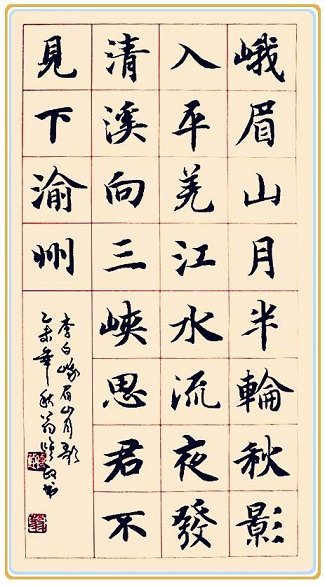 峨眉山月半輪秋影
入平羌江水流夜發
清溪向三峽思君不
見下渝州
李白峨眉山月歌
乙未年秋翁